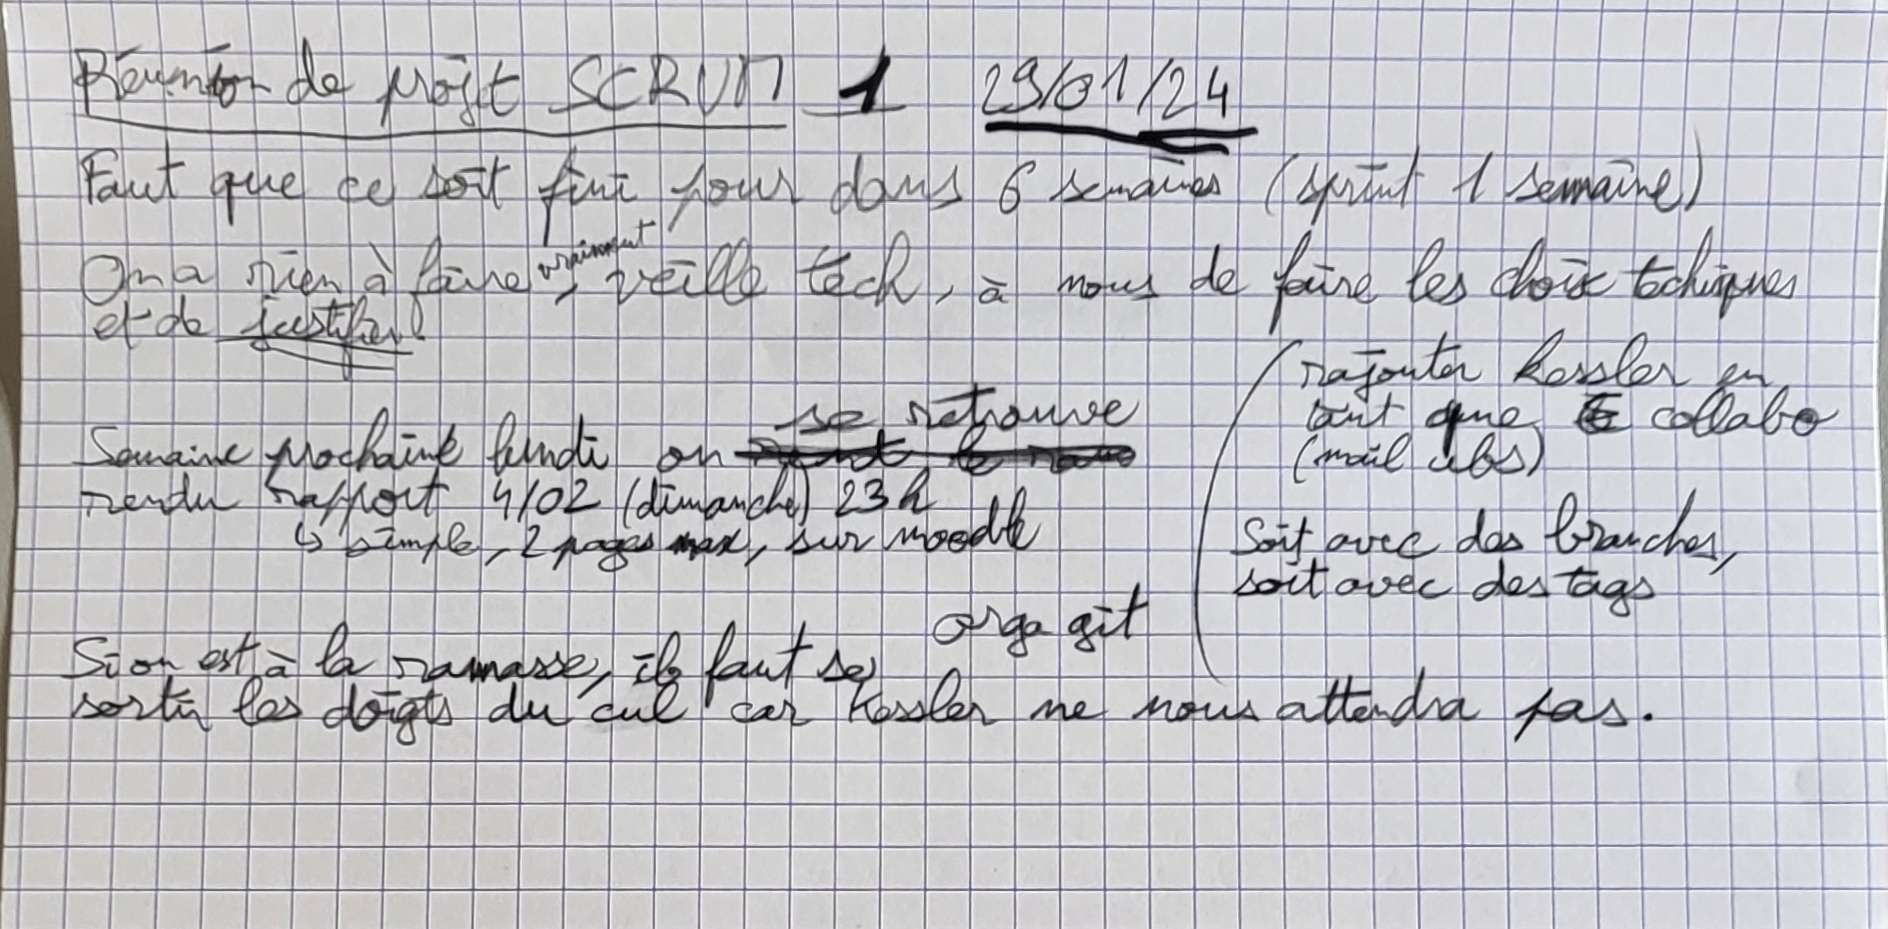 Réunion de projet SCRUM 1 29/01/24
Faut que ce soit fini pour dans 6 semaines (sprint 1 semaine)
On a rien à faire vraiment, veille tech, à nous de faire les choix techniques
et de justifier
Semaine prochaine lundi on se retrouve
rendu rapport 4/02 (dimanche) 23h
↳ simple, 2 pages max, sur moodle
orga git
rajouter Kessler en
tant que collabo
(mail ubs)
Soit avec des branches,
soit avec des tags
Si on est à la ramasse, il faut se
sortir les doigts du cul car Kessler ne nous attendra pas.